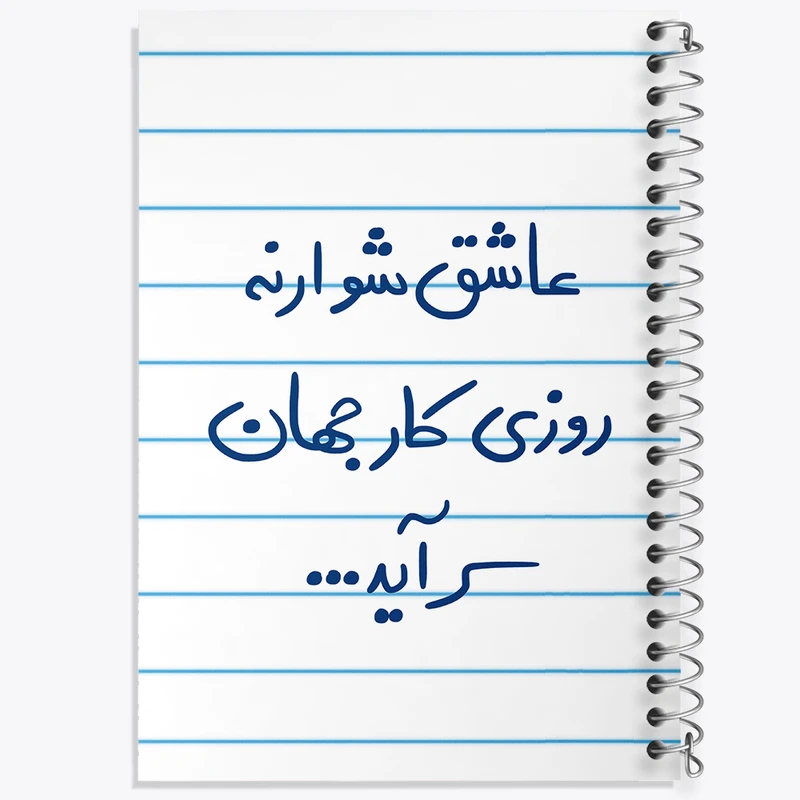 عاشق شو ارنه
روزی کار جهان
سر آید...